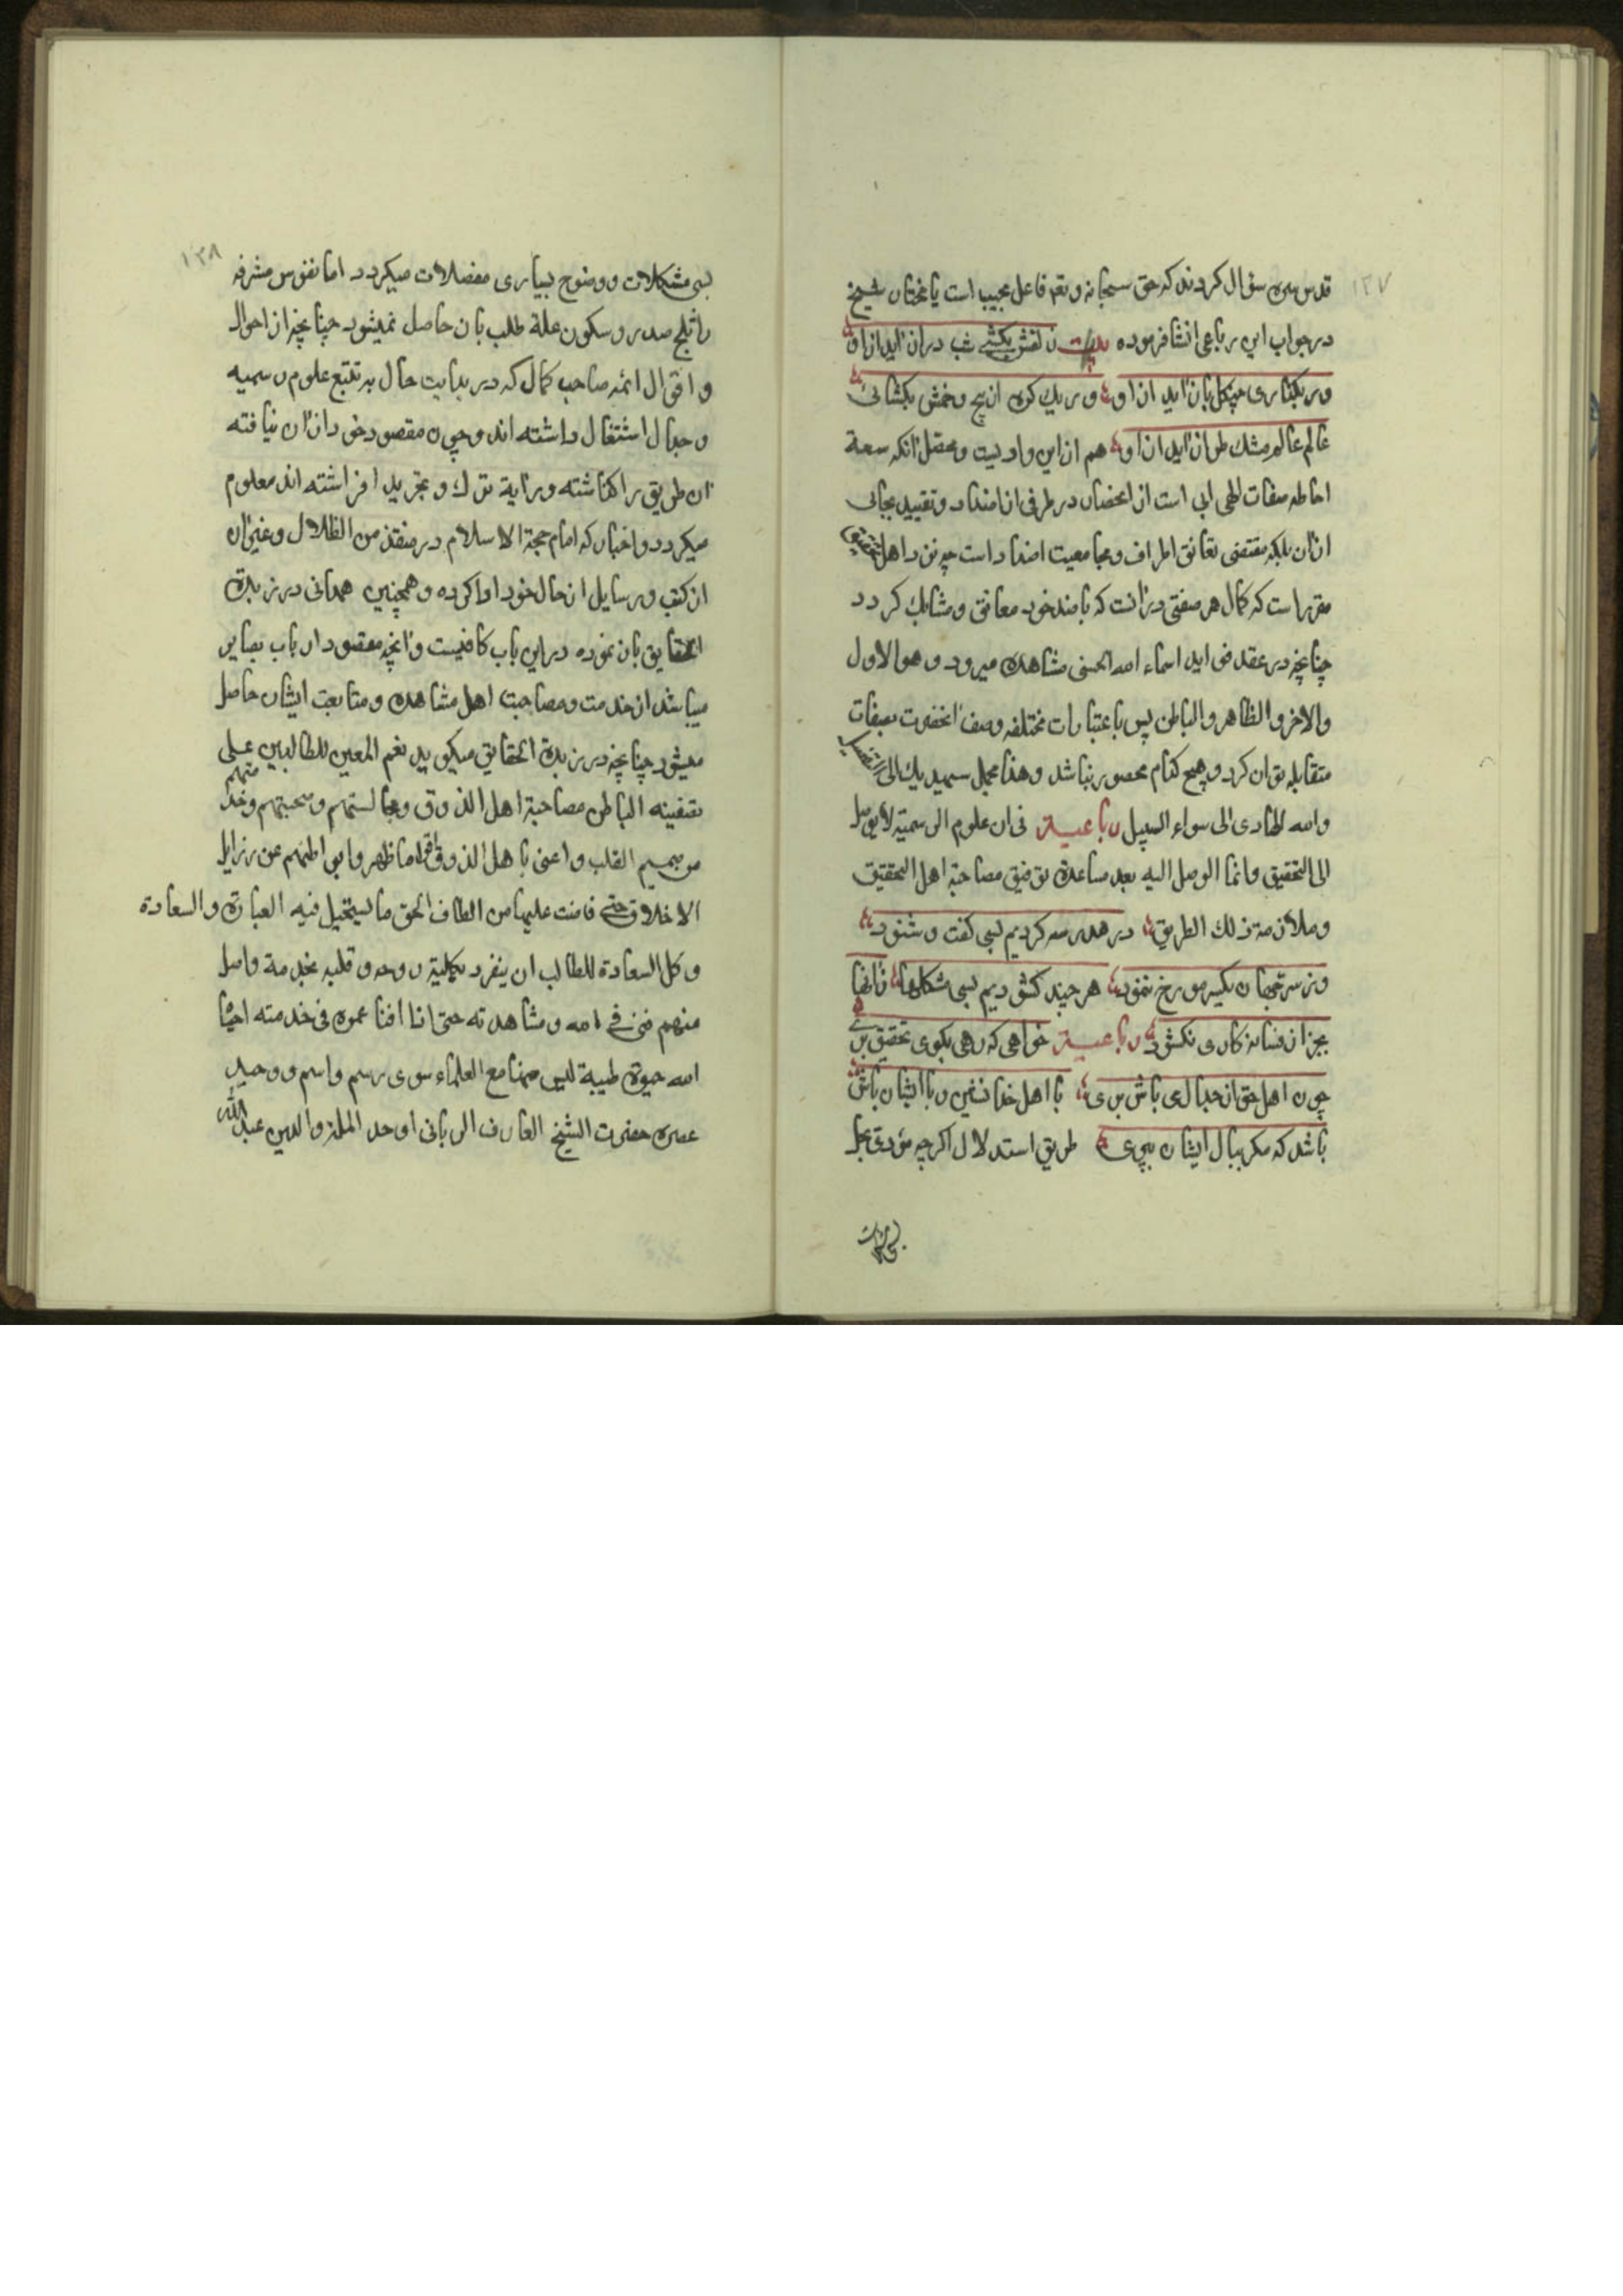 ۱۳۷
قدس سره سؤال کردند که حق سبحانه وتعه فاعل مجیب است یا مختار شیخ
در جواب این رباعی انشا فرموده زلفش بکشے شب دراز اید ازاو
ور بکذاری چنکل باز اید ازاو ور یك کره از پیچ وخمش بکشائی
عالم عالم مشك طراز اید ازاو هم ازاین وادیست ومحقل انکه سعة
احاطه صفات الهی ابی است از انحصار در طرفی از اضداد وتقیید بجانبی
ازان بلکه مقتضی تعانق اطراف ومجامعیت اضداد است چه نزد اهل تحقیق
مقرر است که کمال هر صفتی درانست که با ضد خود معانق ومشابك کردد
چنانچه در عقد فراید اسماء الله الحسنی مشاهده میرود وهو الاول
والاخر والظاهر والباطن پس باعتبارات مختلفه وصف انحضرت بصفات
متقابله توان کرد وهیچ کدام محصور نباشد وهذا مجمل سیهدیك الی التفصیل
والله الهادی الی سواء السبیل رباعیــة فی ان علوم الرسمیة لا یوصل
الی التحقیق وانما الوصل الیه بعد مساعدة توفیق مصاحبة اهل التحقیق
وملازمة ذلك الطریق در مدرسه کردیم بسی کفت وشنود
وز سر تو جهان یکسر مو رخ ننمود هر چند کشودیم بسی مشکلها زانها
بجز از فسانه کاری نکشود رباعیــة خواهی که رهی بکوی تحقیق بری
چون اهل حق از جدال می باش بری با اهل خدا نشین وبا ایشان باش
باشد که مکر ببال ایشان بپری طریق استدلال اکرچه مؤدی بحل
۱۳۸
بسی مشکلات ووضوح بسیاری معضلات میکردد اما نفوس مشرفه
را ثلج صدر وسکون علة طلب بان حاصل نمیشود چنانچه از احوال
واقوال ائمه صاحب کمال که در بدایت حال به تتبع علوم رسمیه
وجدال اشتغال داشته اند وچون مقصود خود ازان نیافته
ان طریق را کذاشته ورایة ترك وتجرید افراشته اند معلوم
میکردد واخبار که امام حجة الاسلام در منقذ من الظلال وغیران
از کتب ورسایل از حال خود ادا کرده وهمچنین همدانی در زبدة
الحقایق بان نموده دراین باب کافیست وانچه مقصود ارباب بصایر
میباشد از خدمت ومصاحبت اهل مشاهده ومتابعت ایشان حاصل
میشود چنانچه در زبدة الحقایق میکوید نعم المعین للطالبین علی
تصفیة الباطن مصاحبة اهل الذوق ومجالستهم وصحبتهم وخدمتهم
من صمیم القلب واعنی باهل الذوق اقواما طهروا بواطنهم عن رزایل
الاخلاق حتی فاضت علیها من الطاف الحق ما یستحیل فیه العبارة والسعادة
وکل السعادة للطالب ان ینفرد بکلیة روحه وقلبه بخدمة واصل
منهم فنی فے الله ومشاهدته حتی اذا افنا عمره فی خدمته احیاه
الله حیوة طیبة لیس منها مع العلماء سوی رسم واسم ووحید
عصره حضرت الشیخ العارف الربانی اوحد الملة والدین عبد الله